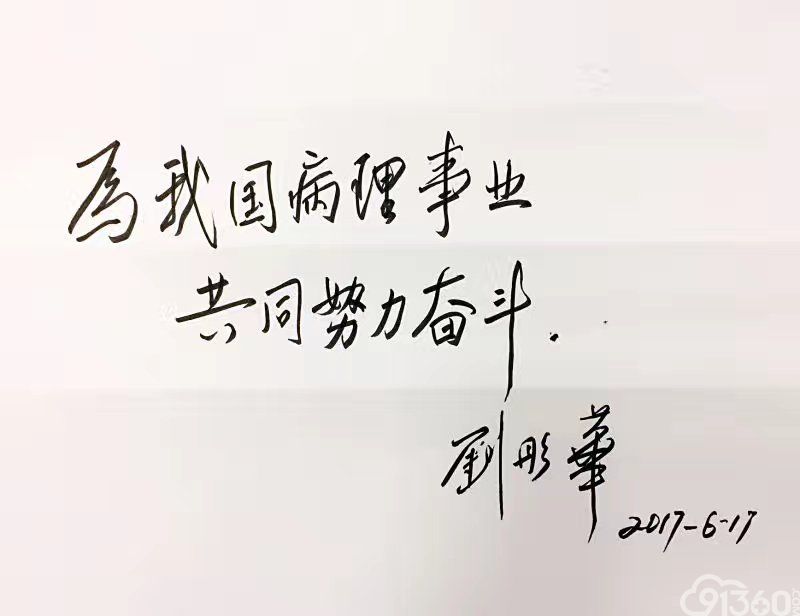 為我国病理事业
共同努力奋斗.
劉彤華
2017-6-17
91360